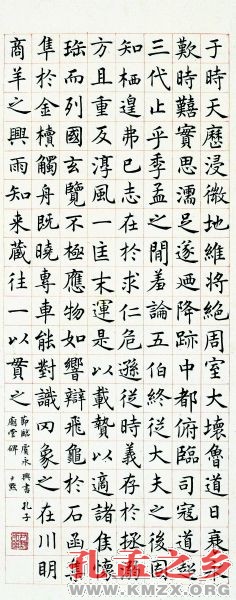 于時天歷浸微地維將絕周室大壞魯道日衰永
歎時囏實思濡足遂迺降跡中都俯臨司寇道超
三代止乎季孟之間羞論五伯終從大夫之後固
知栖遑弗已志在於求仁危遜從義存於拯溺
方且重反淳風一匡末運是以載贄以適諸侯懷
珤而列國玄覽不極應物如響辯飛龜於石函集
隼於金櫝觸舟既曉專車能對識罔象之在川明
商羊之興雨知來藏往一以貫之
節臨虞永興書孔子
廟堂碑
孔孟之乡
WWW.KMZX.ORG